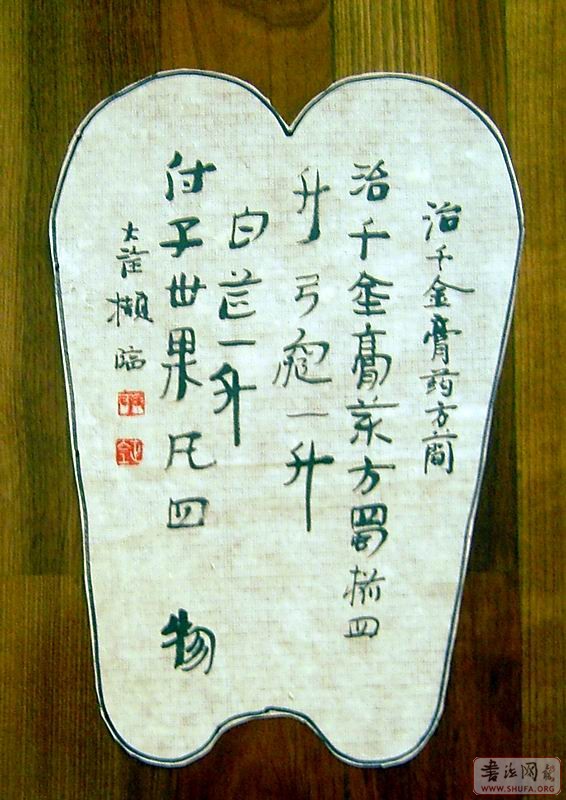 治千金膏药方简
治千金膏药方蜀椒四
升弓窮一升
白芷一升
付子卅果凡四物
临
書法网
WWW.SHUFA.ORG